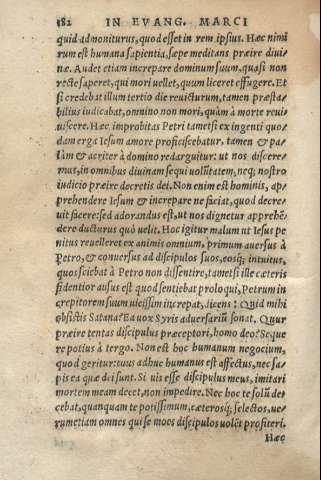 182 IN EVANG. MARCI
quid admoniturus, quod esset in rem ipsius. Hæc nimi
rum est humana sapientia, sæpe meditans præire diui-
næ. Audet etiam increpare dominum suum, quasi non
recte saperet, qui mori uellet, quum liceret effugere. Et
si credebat illum tertio die reuicturum, tamen præsta-
bilius iudicabat, omnino non mori, quàm à morte reui-
uiscere. Hæc improbitas Petri tametsi ex ingenti quo-
dam erga Iesum amore proficiscebatur, tamen & pa-
làm & acriter à domino redarguitur: ut nos discere-
mus, in omnibus diuinam sequi uolũtatem, neq; nostro
iudicio præire decretis dei. Non enim est hominis, ap-
prehendere Iesum & increpare ne faciat, quod decre-
uit facere: sed adorandus est, ut nos dignetur apprehẽ-
dere ducturus quò uelit. Hoc igitur malum ut Iesus pe
nitus reuelleret ex animis omnium, primum auersus à
Petro, & conuersus ad discipulos suos, eosq; intuitus,
quos sciebat à Petro non dissentire, tametsi ille cæteris
fidentior ausus est quod sentiebat proloqui, Petrum in-
crepitorem suum uicissim increpat, dicens: Quid mihi
obsistis Satana? Ea uox Syris aduersariũ sonat. Quur
præire tentas discipulus præceptori, homo deo? Seque
re potius à tergo. Non est hoc humanum negocium,
quod geritur: tuus adhuc humanus est affectus, nec sa-
pis ea quæ dei sunt. Si uis esse discipulus meus, imitari
mortem meam decet, non impedire. Nec hoc te solũ de-
cebat, quanquam te potissimum, cæterosq; selectos, ue-
rumetiam omnes qui se meos discipulos uolẽt profiteri.
Hæc